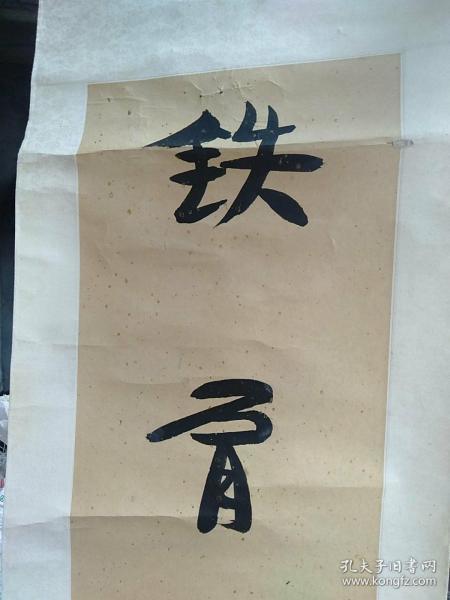 铁
骨
孔夫子旧书网
www.kongfz.com